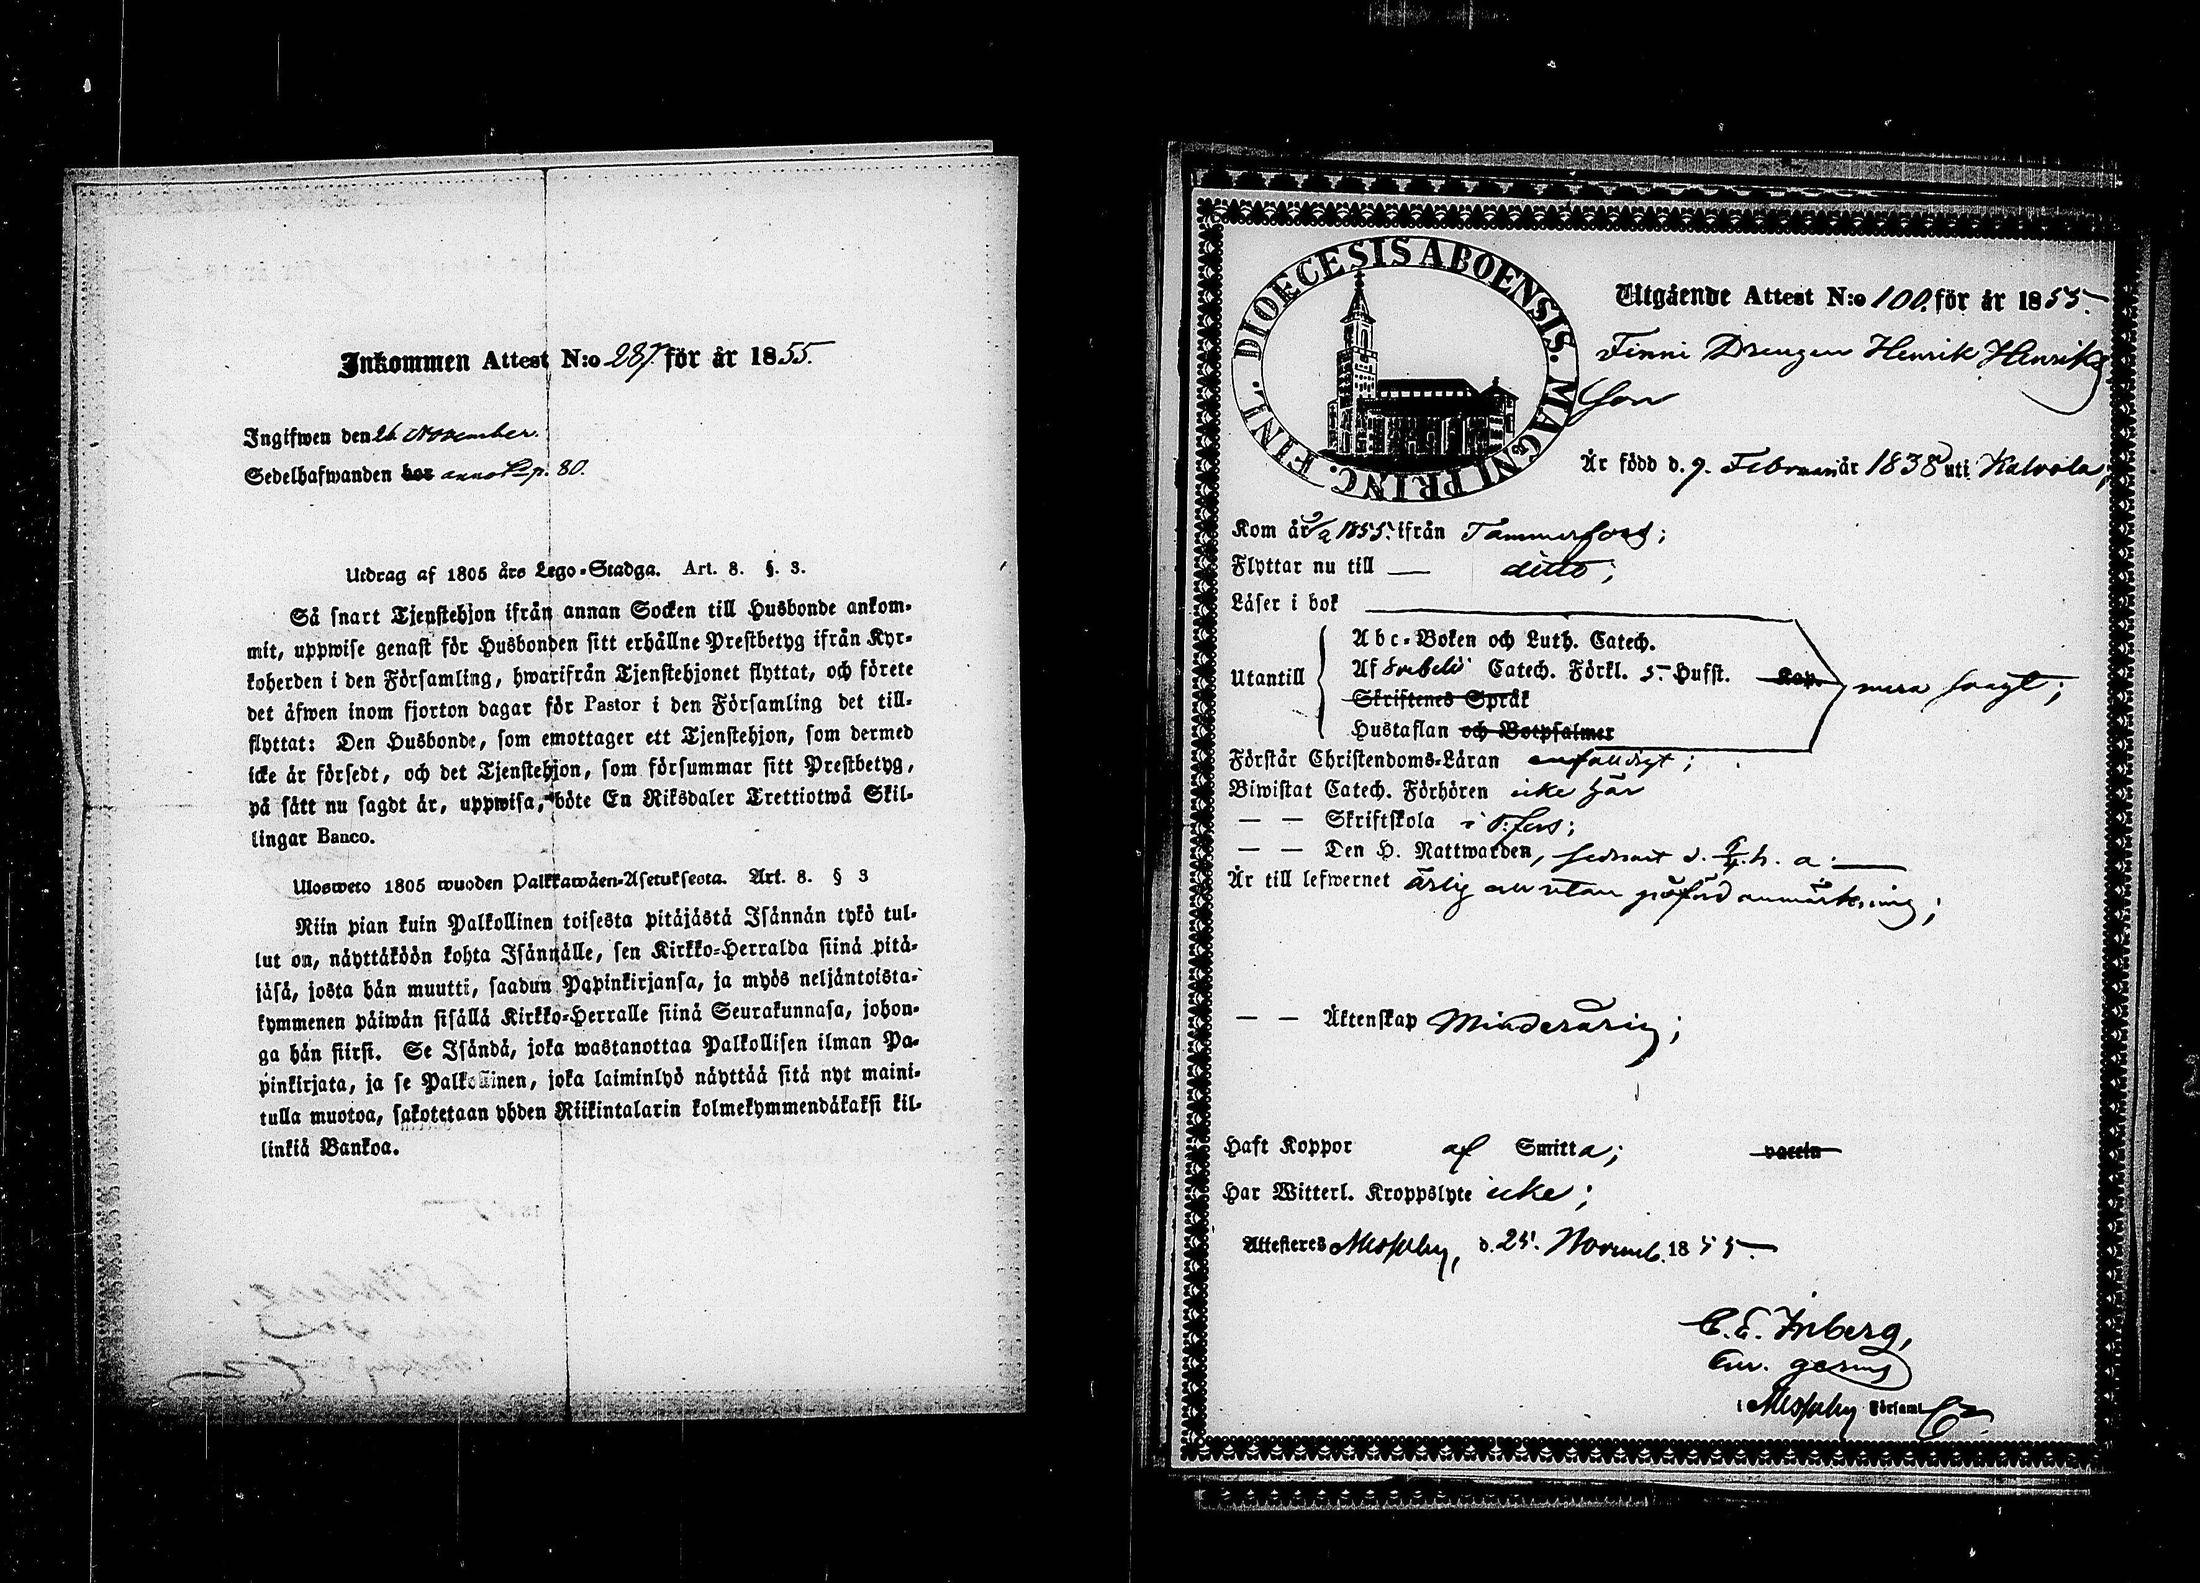 Inkommen Attest N:o 287 för år 1855.
Ingifwen den 26 November.
Sedelhafwanden bor anno p. 80.
Utdrag af 1805 års Lego-Stadga. Art. 8. §. 3.
Så snart Tjenstehjon ifrån annan Socken till Husbonde ankom-
mit, uppwise genast för Husbonden sitt erhållne Prestbetyg ifrån Kyr-
koherden i den Församling, hwarifrån Tjenstehjonet flyttat, och förete
det äfwen inom fjorton dagar för Pastor i den Församling det till-
flyttat: Den Husbonde, som emottager ett Tjenstehjon, som dermed
icke är försedt, och det Tjenstehjon, som försummar sitt Prestbetyg,
på sätt nu sagdt är, uppwisa, böte En Riksdaler Trettiotwå Skil-
lingar Banco.
Ulosweto 1805 wuoden Palkkawäen-Asetuksesta. Art. 8. § 3
Niin pian kuin Palkollinen toisesta pitäjästä Isännän tykö tul-
lut on, näyttäköön kohta Isännälle, sen Kirkko-Herralda siinä pitä-
jäsä, josta hän muutti, saadun Papinkirjansa, ja myös neljäntoista-
kymmenen päiwän sisällä Kirkko-Herralle siinä Seurakunnasa, johon-
ga hän siirsi. Se Isändä, joka wastanottaa Palkollisen ilman Pa-
pinkirjata, ja se Palkollinen, joka laiminlyö näyttää sitä nyt maini-
tulla muotoa, sakotetaan yhden Riikintalarin kolmekymmendäkaksi kil-
linkiä Bankoa.
DIOECESIS ABOENSIS. MAGNI PRINC. FINL.
Utgående Attest N:o 100. för år 1855.
Finni Drengen Henrik Henriks
Son
Är född d. 9. Februari år 1838 uti Kalvola;
Kom år 1855. ifrån Tammerfors;
Flyttar nu till — ditto;
Läser i bok
Utantill
Abc-Boken och Luth. Catech.
Af Svebelii Catech. Förkl. 5 Hufst. Kap.
Skriftenes Språk
Hustaflan och Botpsalmer
svagt;
Förstår Christendoms-Läran enfaldigt;
Biwistat Catech. Förhören icke här
— — Skriftskola i T:fors;
— — Den H. Nattwarden, sednast d. h. a.
Är till lefwernet ärlig utan anmärkning;
— — Äktenskap Minderårig;
Haft Koppor af Smitta; vaccin
Har Witterl. Kroppslyte icke;
Attesteres Messuby, d. 25. Novemb. 1855.
C. E. Inberg,
i Messuby Församl